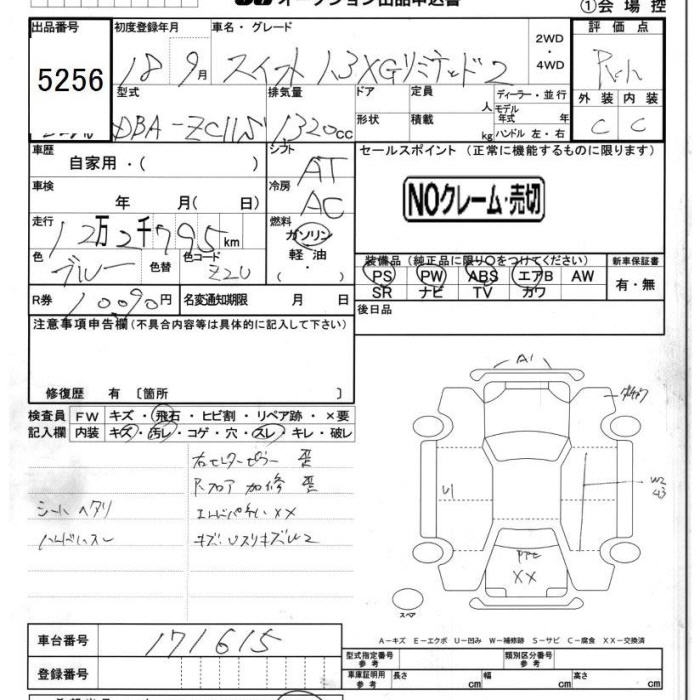 オークション出品申込書
①会場控
出品番号
5256
初度登録年月
18 9月
車名・グレード
スイフト 1.3XGリミテッド2
2WD
・
4WD
評価点
外装 内装
C C
型式
DBA-ZC11S
排気量
1320cc
ドア
形状
定員
人
積載
kg
ディーラー・並行
モデル
年式 年
ハンドル 左・右
車歴
自家用・( )
シフト
AT
車検
年 月( 日)
冷房
AC
走行
12万2千795km
燃料
ガソリン
軽・油
・( )
色
ブルー
色替
色コード
Z2U
R券
10090円
名変通知期限 月 日
セールスポイント(正常に機能するものに限ります)
NOクレーム・売切
装備品(純正品に限り○をつけてください)
PS PW ABS エアB AW
SR ナビ TV カワ
新車保証書
有・無
後日品
注意事項申告欄(不具合内容等は具体的に記入して下さい)
修復歴 有 〔箇所 〕
検査員
記入欄
FW キズ・飛石・ヒビ割・リペア跡・×要
内装 キズ・汚レ・コゲ・穴・スレ・キレ・破レ
シートヘタリ
ハンドルスレ
A1
U1
W2
XX
スペア
A-キズ E-エクボ U-凹み W-補修跡 S-サビ C-腐食 XX-交換済
車台番号
171615
登録番号
型式指定番号
参考
類別区分番号
参考
車庫証明用
参考
長さ cm
幅 cm
高さ cm